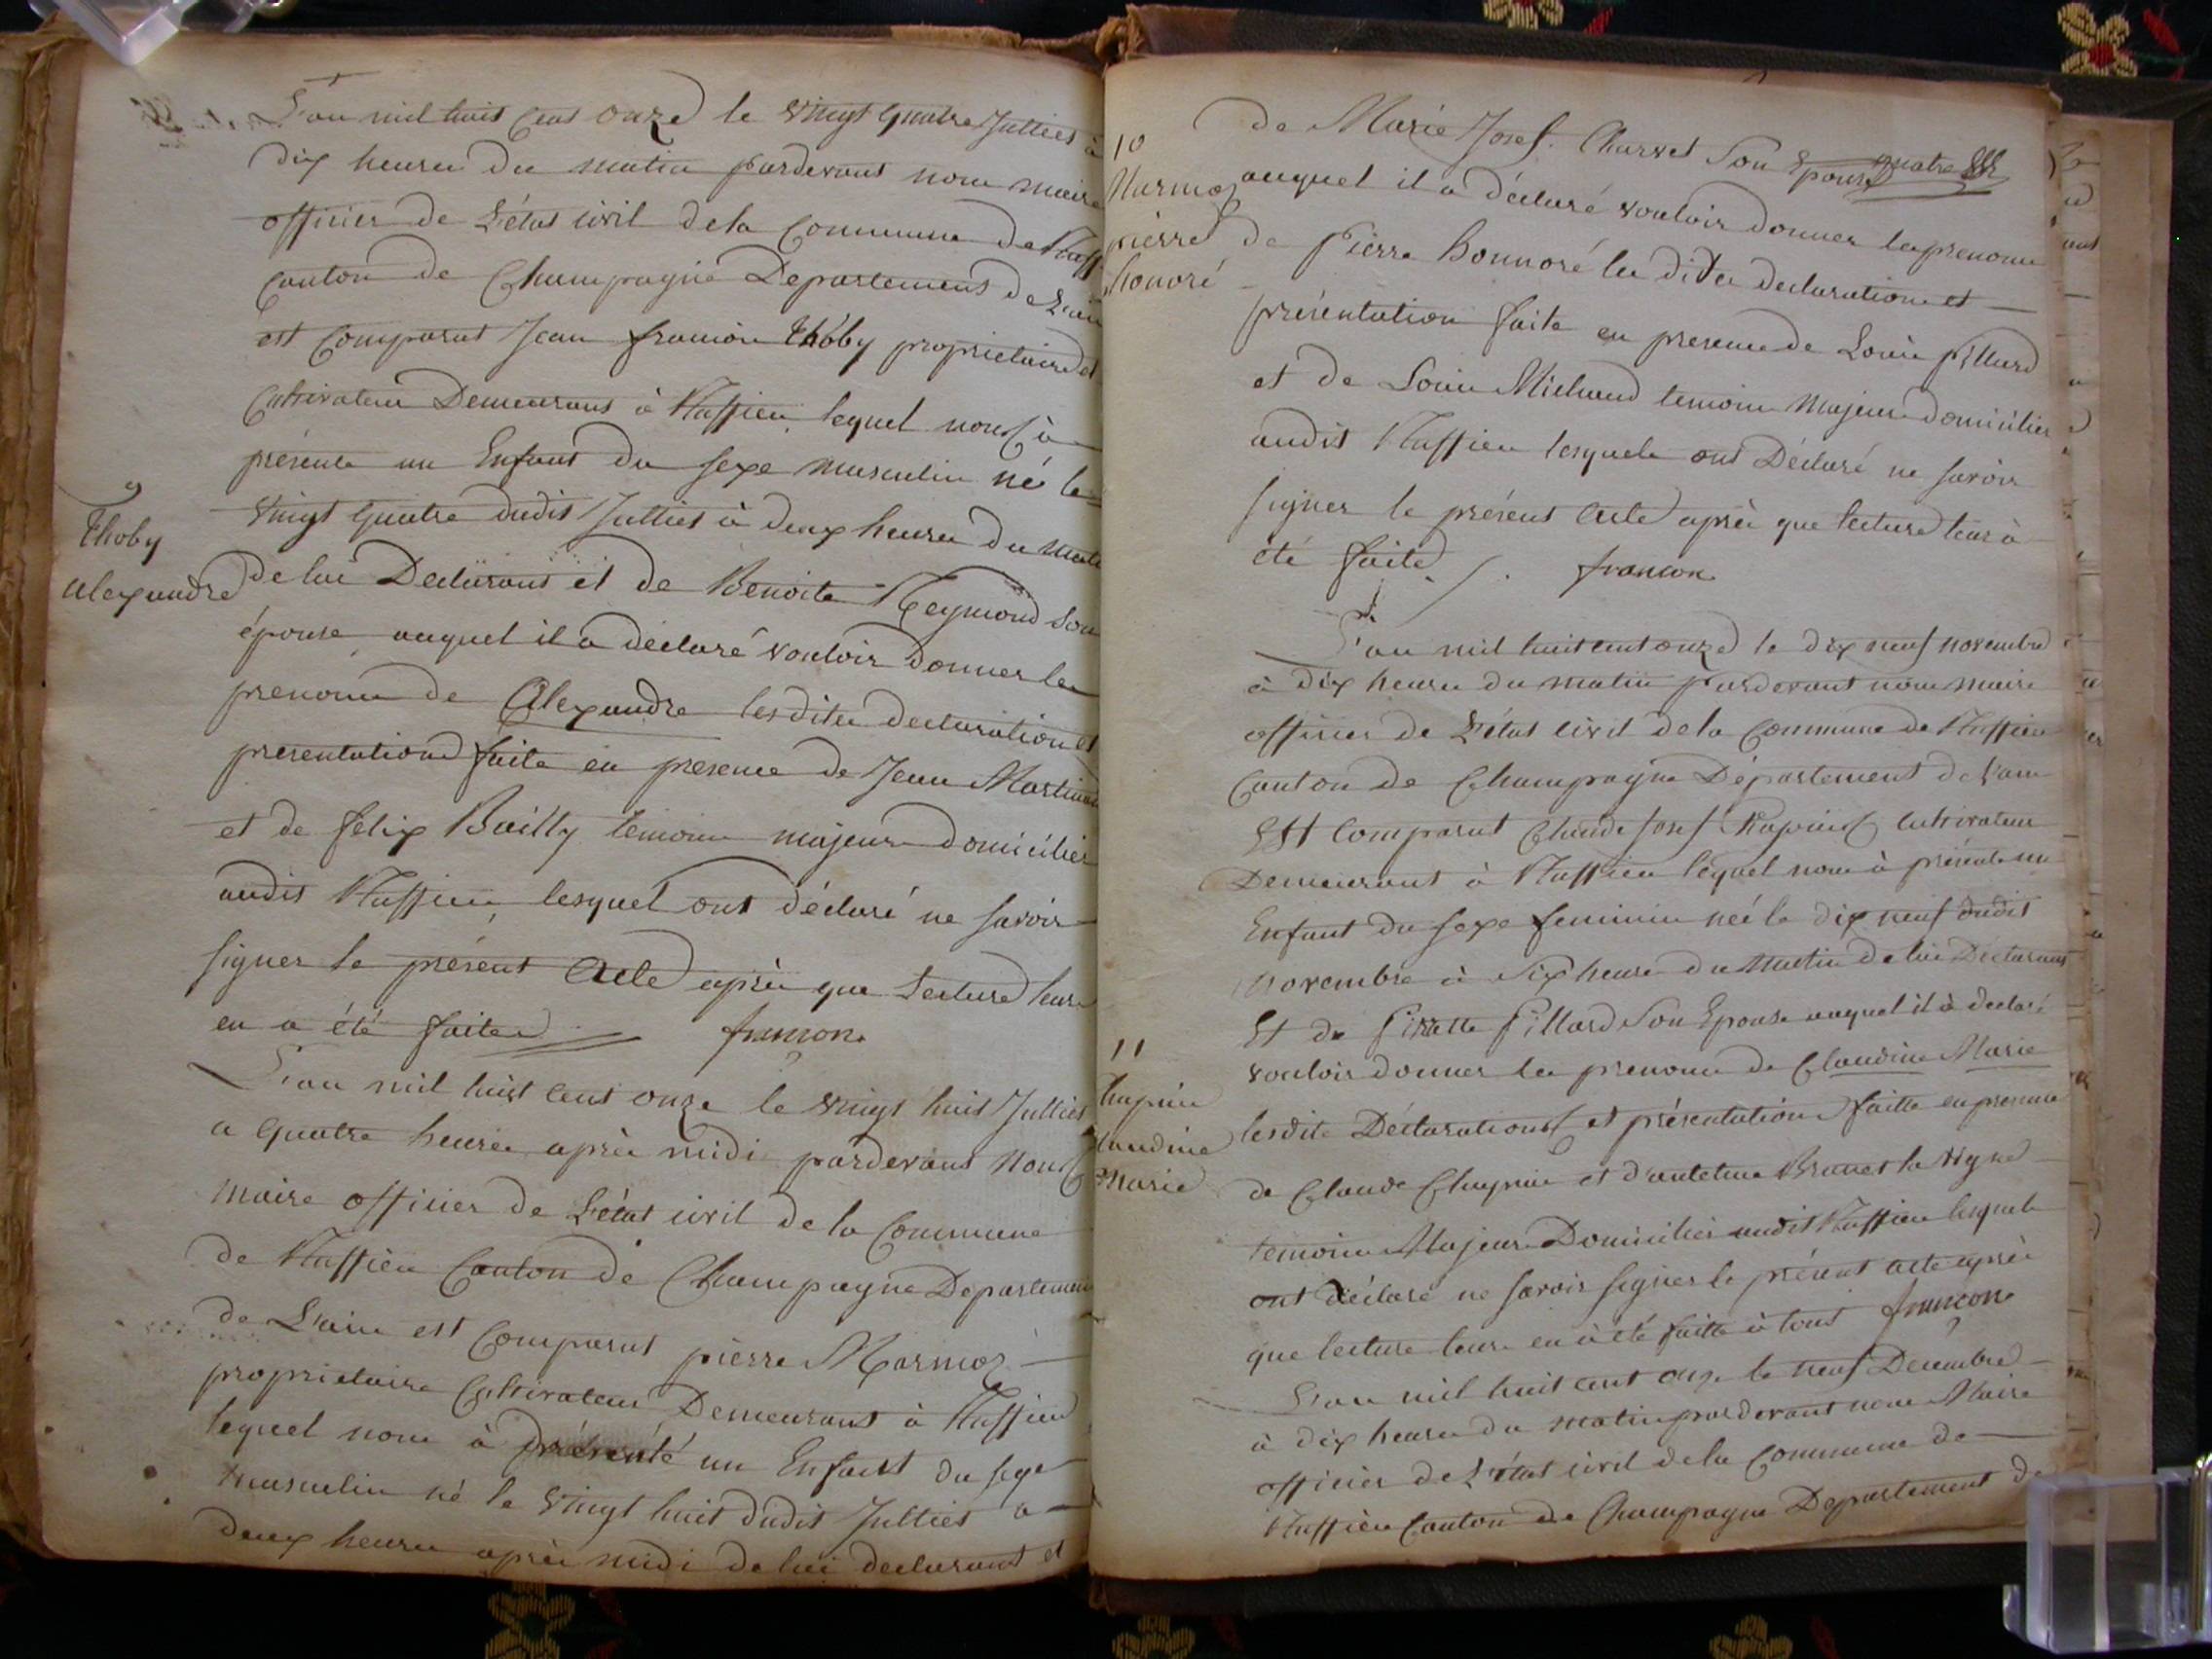 L'an mil huit cent onze le vingt quatre Julliet à
dix heures du matin pardevant nous maire
officier de L'état civil dela Commune de Ruff
Canton de Champagne Departement de L'ain
est Comparut Jean françois thoby proprietaire et
Cultivateur Demeurant à Ruffieu lequel nous à
présenté un Enfant du sexe masculin né le
vingt quatre dudit Julliet à deux heures du mati
9
Thoby
alexandre
de lui Declarant et de Benoite Reymond son
épouse, auquel il a déclaré vouloir donner les
prenoms de Alexandre lesdites declaration et
presentation faite en presence de Jean Martin
et de felix Bailly temoins majeurs domiciliés
audit Ruffieu, lesquel ont déclaré ne savoir
signer le présent acte après que Lecture leurs
en a été faite francon
L'an mil huit cent onze le vingt huit Julliet
a quatre heures après midi pardevant nous
maire officier de L'état civil de la Commune
de Ruffieu Canton de Champagne Departement
de L'ain est Comparut pierre Marmos
proprietaire Cultivateur Demeurant à Ruffieu
lequel nous à présenté un Enfant du sexe
masculin né le vingt huit dudit Julliet a
deux heures après midi de lui declarant et
de Marie Josef. Charvet son Epouse
10
Marmos
pierre
honoré
auquel il a déclaré vouloir donner les prenoms
de Pierre honnoré les dites declaration et
présentation faite en presence de Louis pillard
et de Louis Michaud temoins Majeurs domiciliés
audit Ruffieu lesquels ont Déclaré ne savoir
signer le présent acte après que lecture leur à
été faite francon
L'an mil huit cent onze le dix neuf novembre
à dix heures du matin pardevant nous maire
officier de L'état civil dela Commune de Ruffieu
Canton de Champagne Département de l'ain
Est Comparut Claude Josef Cultivateur
Demeurant à Ruffieu lequel nous à présenté un
Enfant du sexe feminin née le dix neuf dudit
novembre à Six heures du Matin de lui Déclarant
Et de Pillard son Epouse auquel il à declaré
vouloir donner les prenoms de Claudine Marie
11
Claudine
Marie
lesdite Déclarations et présentation faitte en presence
de Claude Chapuis et d'antelme Brunet la vigne
temoins Majeurs Domiciliés audit Ruffieu lesquels
ont déclaré ne savoir signer le présent acte après
que lecture leurs en à été faitte à tous francon
L'an mil huit cent onze le neuf Decembre
à dix heures du matin pardevant nous Maire
officier de L'état civil dela Commune de
Ruffieu Canton de Champagne Departement de